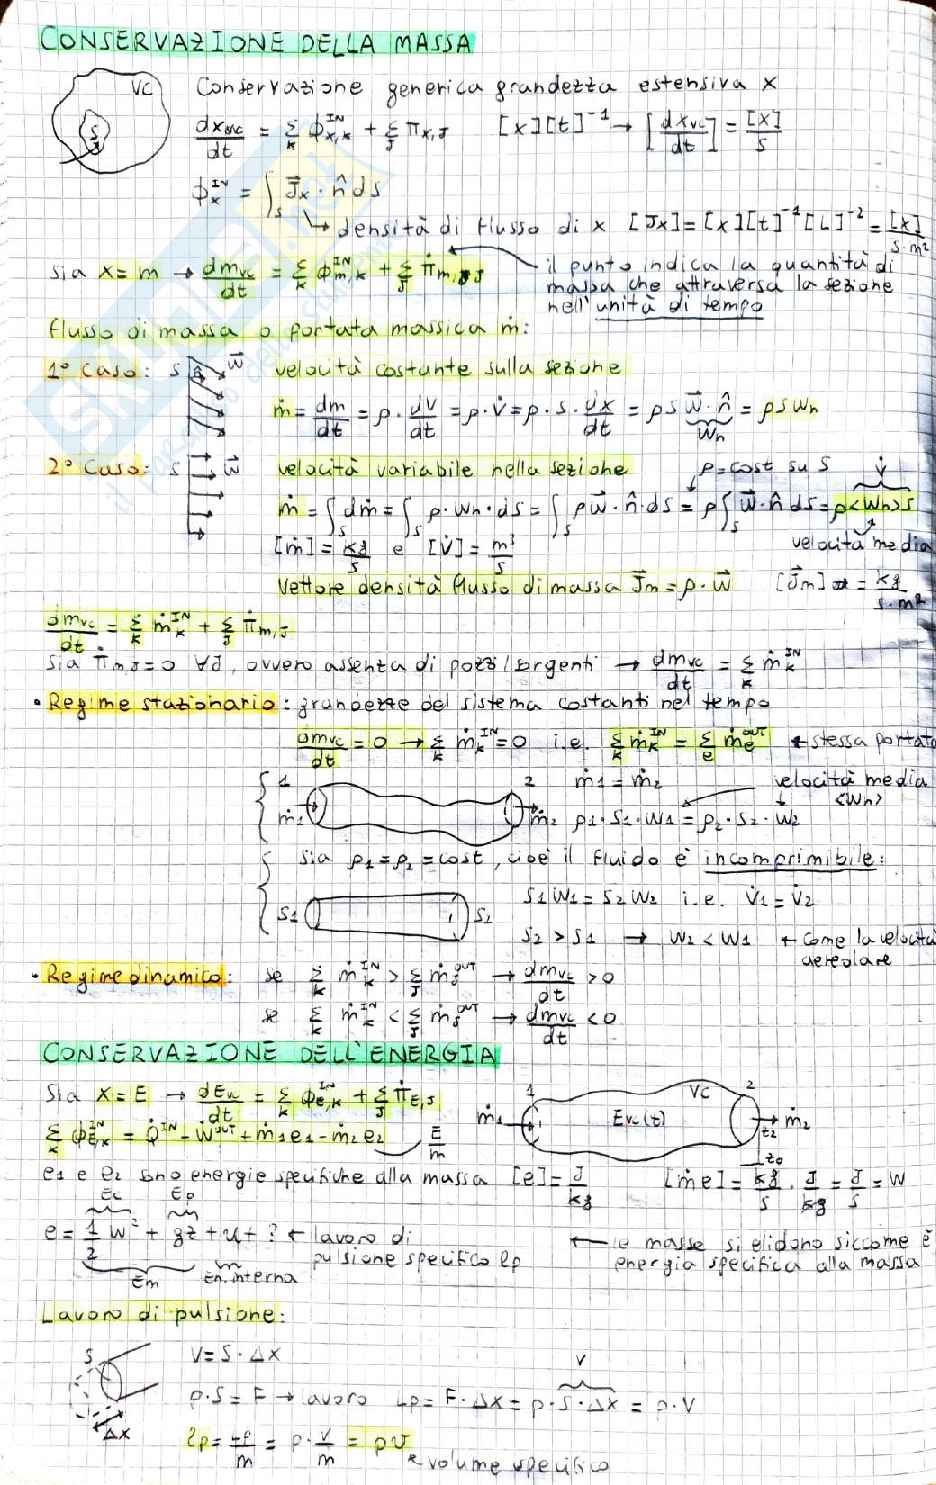 CONSERVAZIONE DELLA MASSA
VC
S
Conservazione generica grandezza estensiva x
dx_vc/dt = Σ_k ϕ_x,k^IN + Σ_J π_x,J [x][t]^-1 → [dx_vc/dt] = [x]/s
ϕ_x^IN = ∫_S J⃗x · n̂ ds
↳ densità di flusso di x [Jx] = [x][t]^-1[L]^-2 = [x]/(s·m²)
Sia x = m → dm_vc/dt = Σ_k ϕ_m,k^IN + Σ_J π̇_m,J
il punto indica la quantità di
massa che attraversa la sezione
nell'unità di tempo
flusso di massa o portata massica ṁ:
1° Caso: S n̂ w⃗ velocità costante sulla sezione
ṁ = dm/dt = ρ · dV/dt = ρ · V̇ = ρ · S · dx/dt = ρS w⃗ · n̂ = ρSwn
wn
2° Caso: S w⃗ velocità variabile nella sezione ρ=cost su S V̇
ṁ = ∫_S dṁ = ∫_S ρ · wn · ds = ∫_S ρw⃗ · n̂ · ds = ρ∫_S w⃗ · n̂ ds = ρ<wn>S
[ṁ] = kg/s e [V̇] = m³/s velocità media
Vettore densità flusso di massa J⃗m = ρ · w⃗ [J⃗m] = kg/(s·m²)
dm_vc/dt = Σ_k ṁ_k^IN + Σ_J π̇_m,J
Sia π̇_m,J = 0 ∀J, ovvero assenza di pozzi/sorgenti → dm_vc/dt = Σ_k ṁ_k^IN
• Regime stazionario: grandezze del sistema costanti nel tempo
dm_vc/dt = 0 → Σ_k ṁ_k^IN = 0 i.e. Σ_k ṁ_k^IN = Σ_e ṁ_e^OUT ← stessa portata
1 2 ṁ1 = ṁ2 velocità media
<wn>
ṁ1 ṁ2 ρ1·S1·w1 = ρ2·S2·w2
Sia ρ1 = ρ2 = cost, cioè il fluido è incomprimibile:
S1 S2 S1w1 = S2w2 i.e. V̇1 = V̇2
S2 > S1 → w2 < w1 ← come la velocità
aereolare
• Regime dinamico: se Σ_k ṁ_k^IN > Σ_J ṁ_J^OUT → dm_vc/dt > 0
se Σ_k ṁ_k^IN < Σ_J ṁ_J^OUT → dm_vc/dt < 0
CONSERVAZIONE DELL'ENERGIA
Sia x = E → dE_vc/dt = Σ_k ϕ_E,k^IN + Σ_J π̇_E,J
1 VC 2
ṁ1 Evc(t) ṁ2
z2
z0
Σ_k ϕ_E,k^IN = Q̇^IN - Ẇ^OUT + ṁ1e1 - ṁ2e2 E/m
e1 e e2 sono energie specifiche alla massa [e] = J/kg [ṁe] = kg/s · J/kg = J/s = W
Ec Ep
e = 1/2 w² + gz + u + ? ← lavoro di
pulsione specifico lp
Em En. interna
← le masse si elidono siccome è
energia specifica alla massa
Lavoro di pulsione:
S
Δx
V = S · Δx
p·S = F → lavoro Lp = F · Δx = p · S · Δx = p · V
V
lp = Lp/m = p · V/m = pv
volume specifico